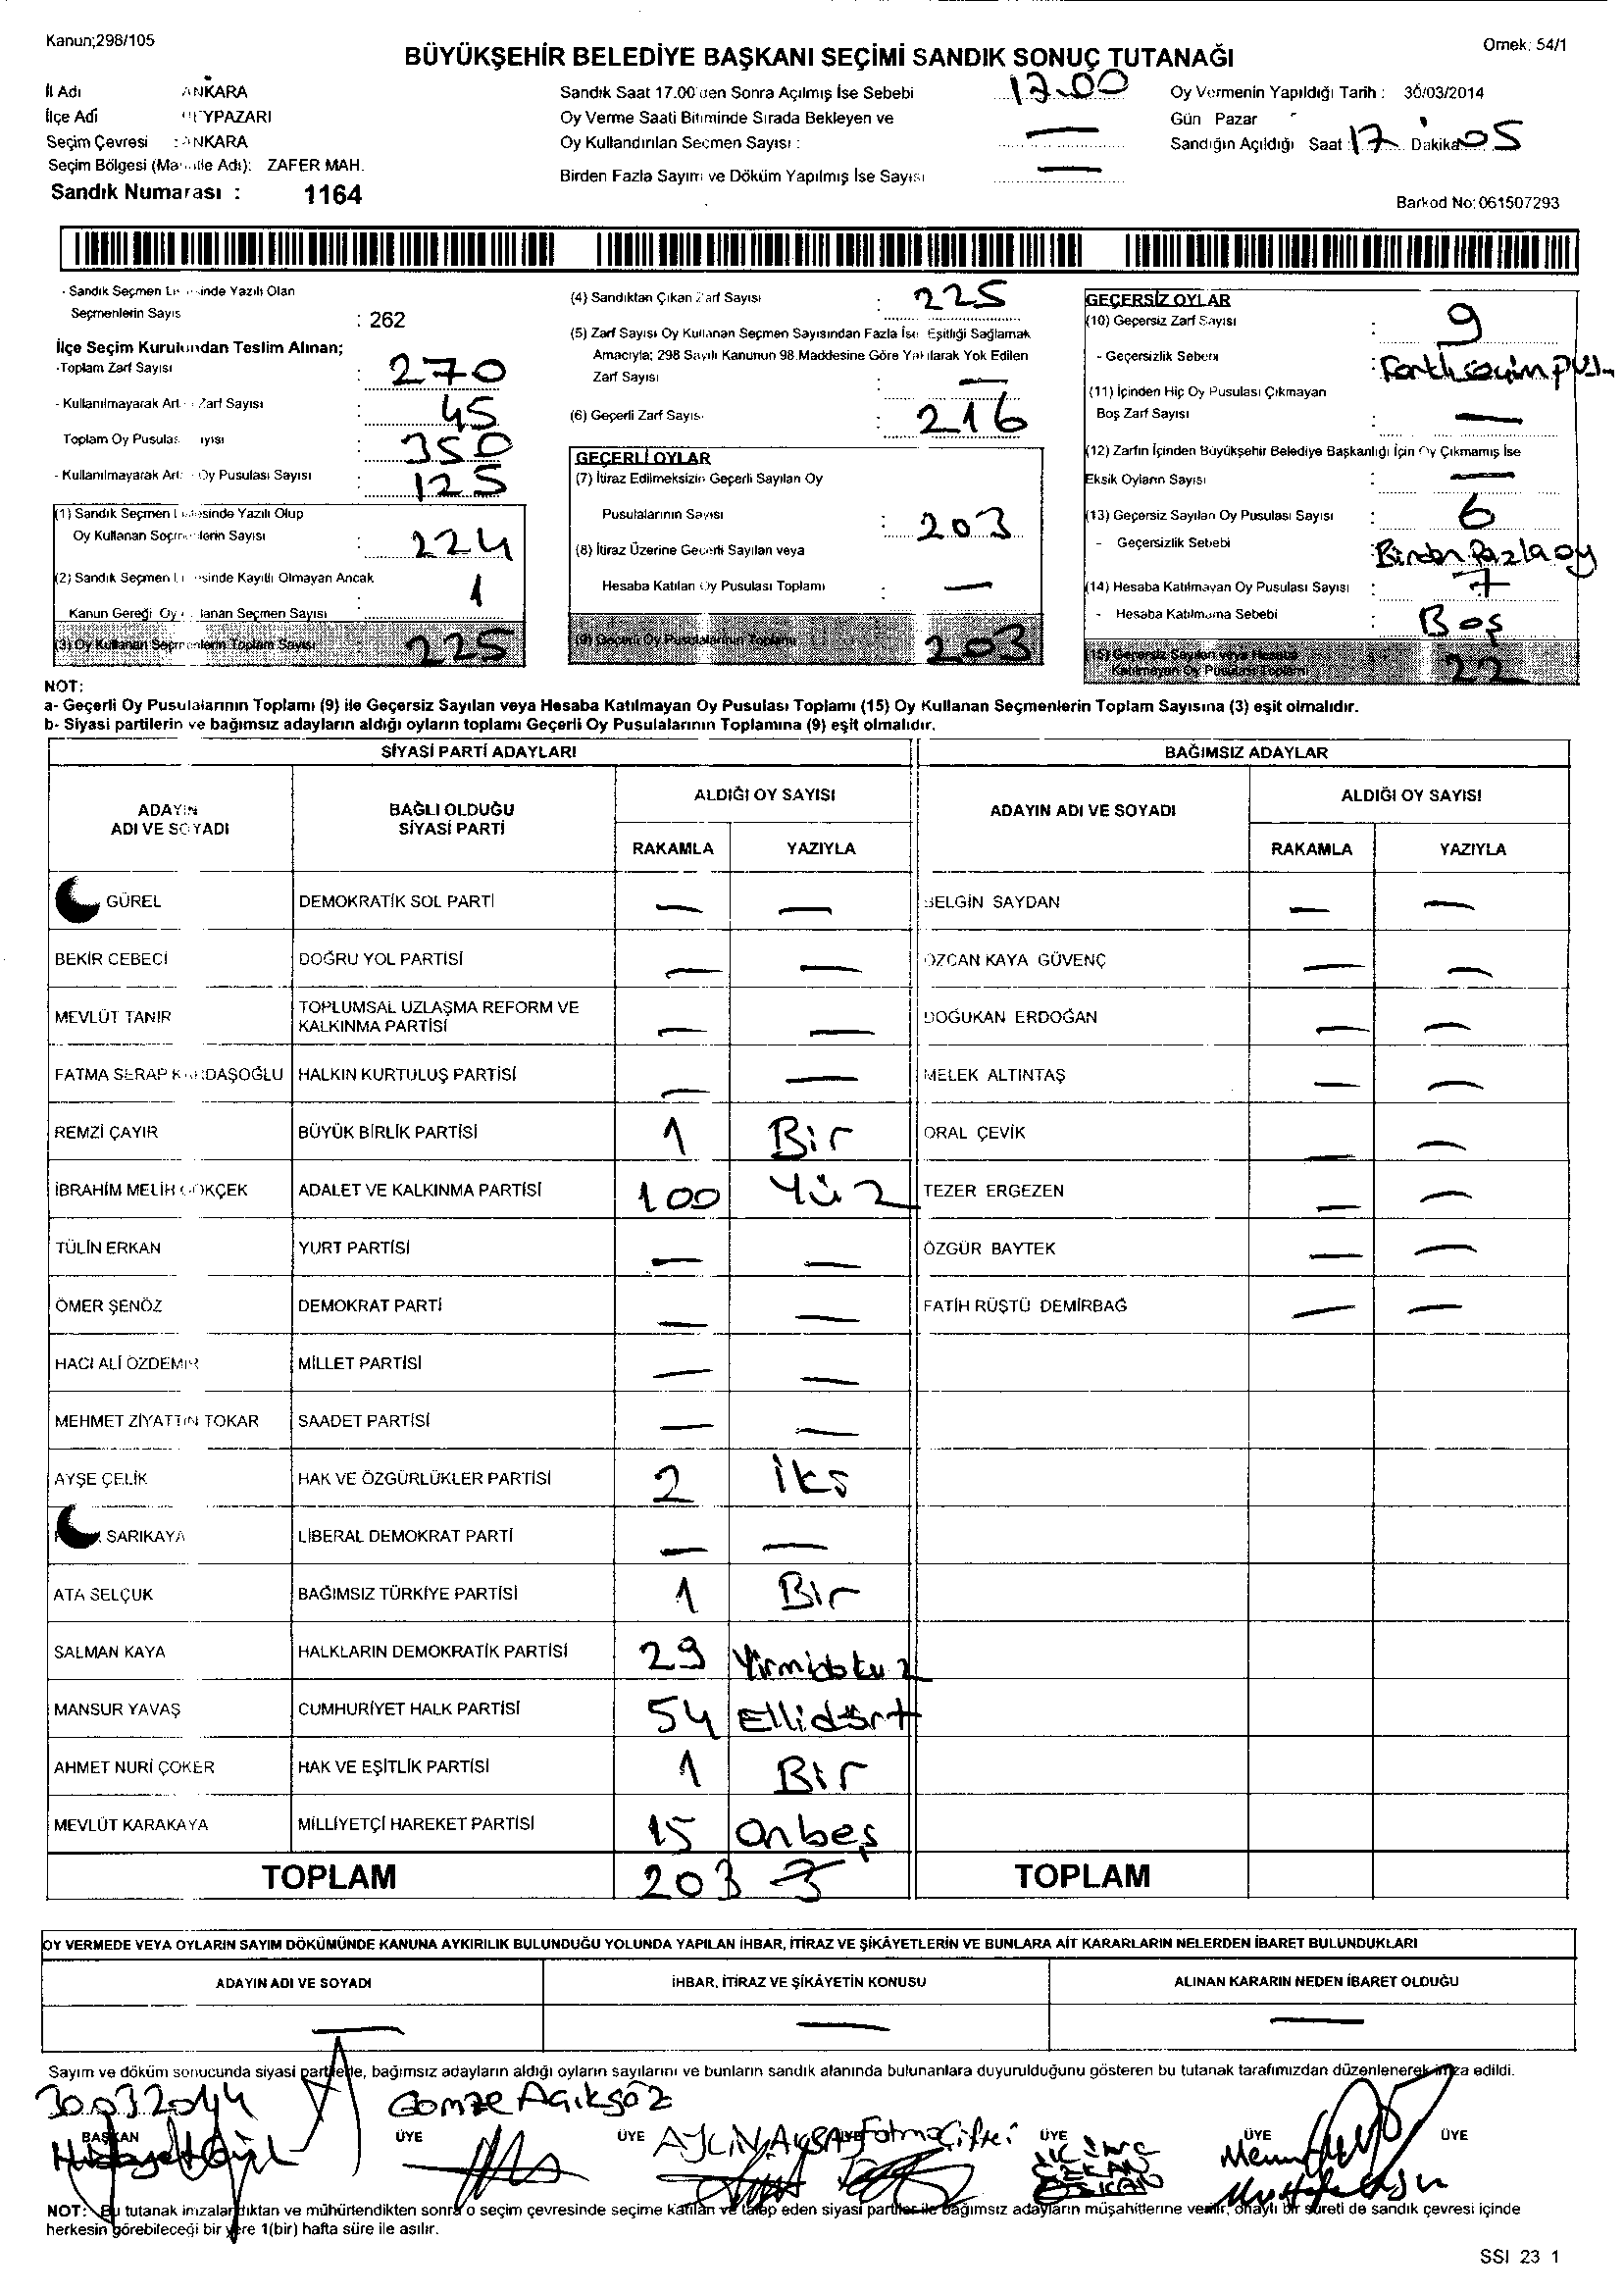 Kanun;298/105
Örnek: 54/1
BÜYÜKŞEHİR BELEDİYE BAŞKANI SEÇİMİ SANDIK SONUÇ TUTANAĞI
İl Adı ANKARA
İlçe Adı YPAZARI
Seçim Çevresi : ANKARA
Seçim Bölgesi (Ma alle Adı): ZAFER MAH.
Sandık Numarası : 1164
Sandık Saat 17.00'den Sonra Açılmış İse Sebebi 17.00
Oy Verme Saati Bitiminde Sırada Bekleyen ve
Oy Kullandırılan Seçmen Sayısı : —
Birden Fazla Sayım ve Döküm Yapılmış İse Sayısı —
Oy Vermenin Yapıldığı Tarih : 30/03/2014
Gün Pazar
Sandığın Açıldığı Saat : 17 Dakika 05
Barkod No: 061507293
- Sandık Seçmen Li inde Yazılı Olan
Seçmenlerin Sayıs : 262
İlçe Seçim Kurulundan Teslim Alınan;
-Toplam Zarf Sayısı : 270
- Kullanılmayarak Art Zarf Sayısı : 45
Toplam Oy Pusulas ayısı : 350
- Kullanılmayarak Art Oy Pusulası Sayısı : 125
(1) Sandık Seçmen Listesinde Yazılı Olup
Oy Kullanan Seçmenlerin Sayısı : 224
(2) Sandık Seçmen Li esinde Kayıtlı Olmayan Ancak
Kanun Gereği Oy lanan Seçmen Sayısı : 1
(3) Oy Kullanan Seçmenlerin Toplam Sayısı 225
(4) Sandıktan Çıkan Zarf Sayısı : 225
(5) Zarf Sayısı Oy Kullanan Seçmen Sayısından Fazla İse Eşitliği Sağlamak
Amacıyla; 298 Sayılı Kanunun 98.Maddesine Göre Yakılarak Yok Edilen
Zarf Sayısı : —
(6) Geçerli Zarf Sayıs : 216
GEÇERLİ OYLAR
(7) İtiraz Edilmeksizin Geçerli Sayılan Oy
Pusulalarının Sayısı : 203
(8) İtiraz Üzerine Geçerli Sayılan veya
Hesaba Katılan Oy Pusulası Toplamı : —
(9) Geçerli Oy Pusulalarının Toplamı 203
GEÇERSİZ OYLAR
(10) Geçersiz Zarf Sayısı : 9
- Geçersizlik Sebebi : Farklı seçim pus.
(11) İçinden Hiç Oy Pusulası Çıkmayan
Boş Zarf Sayısı : —
(12) Zarfın İçinden Büyükşehir Belediye Başkanlığı İçin Oy Çıkmamış İse
Eksik Oyların Sayısı : —
(13) Geçersiz Sayılan Oy Pusulası Sayısı : 6
- Geçersizlik Sebebi : Birden fazla oy
(14) Hesaba Katılmayan Oy Pusulası Sayısı : 7
- Hesaba Katılmama Sebebi : Boş
(15) Geçersiz Sayılan veya Hesaba
Katılmayan Oy Pusulası Toplamı : 22
NOT:
a- Geçerli Oy Pusulalarının Toplamı (9) ile Geçersiz Sayılan veya Hesaba Katılmayan Oy Pusulası Toplamı (15) Oy Kullanan Seçmenlerin Toplam Sayısına (3) eşit olmalıdır.
b- Siyasi partilerin ve bağımsız adayların aldığı oyların toplamı Geçerli Oy Pusulalarının Toplamına (9) eşit olmalıdır.
SİYASİ PARTİ ADAYLARI BAĞIMSIZ ADAYLAR
ADAYIN ADI VE SOYADI BAĞLI OLDUĞU SİYASİ PARTİ ALDIĞI OY SAYISI ADAYIN ADI VE SOYADI ALDIĞI OY SAYISI
RAKAMLA YAZIYLA RAKAMLA YAZIYLA
GÜREL DEMOKRATİK SOL PARTİ — — BELGİN SAYDAN — —
BEKİR CEBECİ DOĞRU YOL PARTİSİ — — ÖZCAN KAYA GÜVENÇ — —
MEVLÜT TANIR TOPLUMSAL UZLAŞMA REFORM VE KALKINMA PARTİSİ — — DOĞUKAN ERDOĞAN — —
FATMA SERAP K DAŞOĞLU HALKIN KURTULUŞ PARTİSİ — — MELEK ALTINTAŞ — —
REMZİ ÇAYIR BÜYÜK BİRLİK PARTİSİ 1 Bir ORAL ÇEVİK — —
İBRAHİM MELİH GÖKÇEK ADALET VE KALKINMA PARTİSİ 100 Yüz TEZER ERGEZEN — —
TÜLİN ERKAN YURT PARTİSİ — — ÖZGÜR BAYTEK — —
ÖMER ŞENÖZ DEMOKRAT PARTİ — — FATİH RÜŞTÜ DEMİRBAĞ — —
HACI ALİ ÖZDEMİR MİLLET PARTİSİ — —
MEHMET ZİYATTİN TOKAR SAADET PARTİSİ — —
AYŞE ÇELİK HAK VE ÖZGÜRLÜKLER PARTİSİ 2 İki
SARIKAYA LİBERAL DEMOKRAT PARTİ — —
ATA SELÇUK BAĞIMSIZ TÜRKİYE PARTİSİ 1 Bir
SALMAN KAYA HALKLARIN DEMOKRATİK PARTİSİ 29 Yirmidokuz
MANSUR YAVAŞ CUMHURİYET HALK PARTİSİ 54 Ellidört
AHMET NURİ ÇOKER HAK VE EŞİTLİK PARTİSİ 1 Bir
MEVLÜT KARAKAYA MİLLİYETÇİ HAREKET PARTİSİ 15 Onbeş
TOPLAM 203 TOPLAM
OY VERMEDE VEYA OYLARIN SAYIM DÖKÜMÜNDE KANUNA AYKIRILIK BULUNDUĞU YOLUNDA YAPILAN İHBAR, İTİRAZ VE ŞİKÂYETLERİN VE BUNLARA AİT KARARLARIN NELERDEN İBARET BULUNDUKLARI
ADAYIN ADI VE SOYADI İHBAR, İTİRAZ VE ŞİKÂYETİN KONUSU ALINAN KARARIN NEDEN İBARET OLDUĞU
— — —
Sayım ve döküm sonucunda siyasi partilerle, bağımsız adayların aldığı oyların sayılarını ve bunların sandık alanında bulunanlara duyurulduğunu gösteren bu tutanak tarafımızdan düzenlenerek imza edildi.
30.03.2014 Gamze Açıkgöz
BAŞKAN ÜYE ÜYE ÜYE ÜYE ÜYE ÜYE
Fatma Çiftçi
NOT: Bu tutanak imzalandıktan ve mühürlendikten sonra o seçim çevresinde seçime katılan ve talep eden siyasi partiler ile bağımsız adayların müşahitlerine verilir, onaylı bir sureti de sandık çevresi içinde
herkesin görebileceği bir yere 1(bir) hafta süre ile asılır.
SSI 23 1